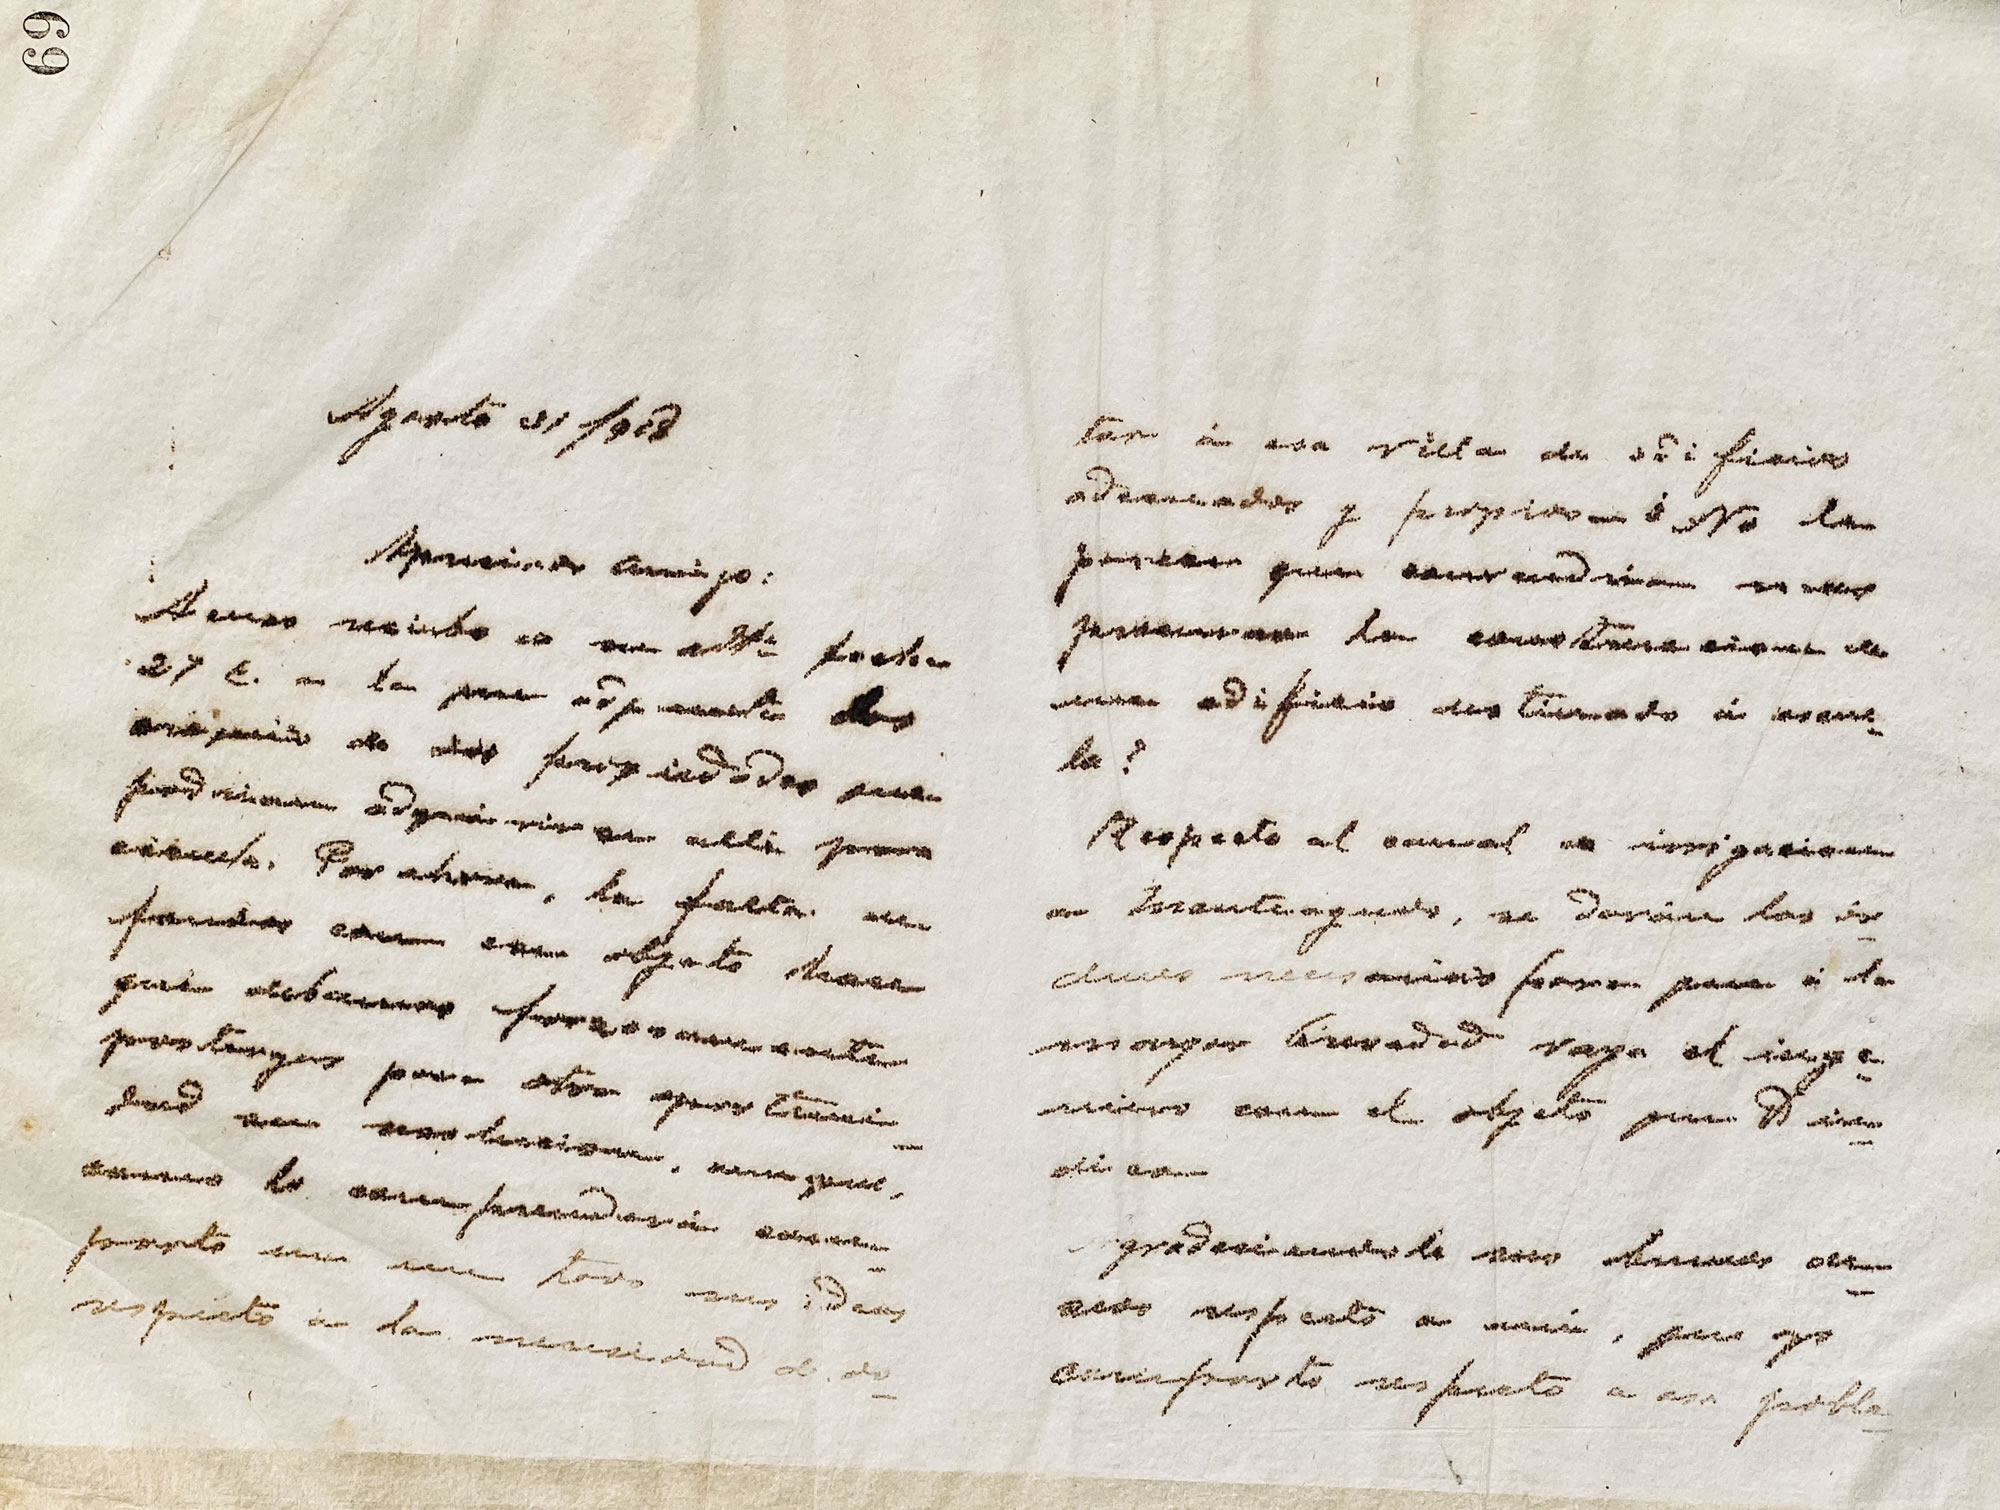 69
Agosto 31/908
Apreciado amigo:
Acuso recibo de su atta fecha
27 c. a la que adjunta
de dos propiedades que
podrian adquirirse alli para
escuela. Por ahora, la falta de
fondos con ese objeto hace
que debamos forzosamente
postergar para otra oportuni-
dad su resolucion, aunque,
como lo comprenderá com-
parto en un todo sus ideas
respecto á la necesidad de do-
tar á esa villa de edificios
adecuados y propios. ¿No le
parece que convendria mas
procurar la construccion de
un edificio destinado á escue-
la?
Respecto al canal de irrigacion
de Monteagudo, se darán las ór-
denes necesarias para que á la
mayor brevedad vaya el inge-
niero con el objeto que Vd in-
dica
Agradeciendole sus buenos de-
seos respecto a mi, que yo
comparto respecto a esa pobla-